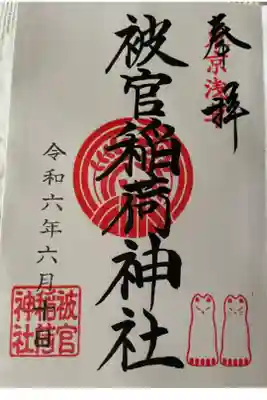 奉拝
京浅
被官稲荷神社
令和六年六月十日
被官稲荷神社